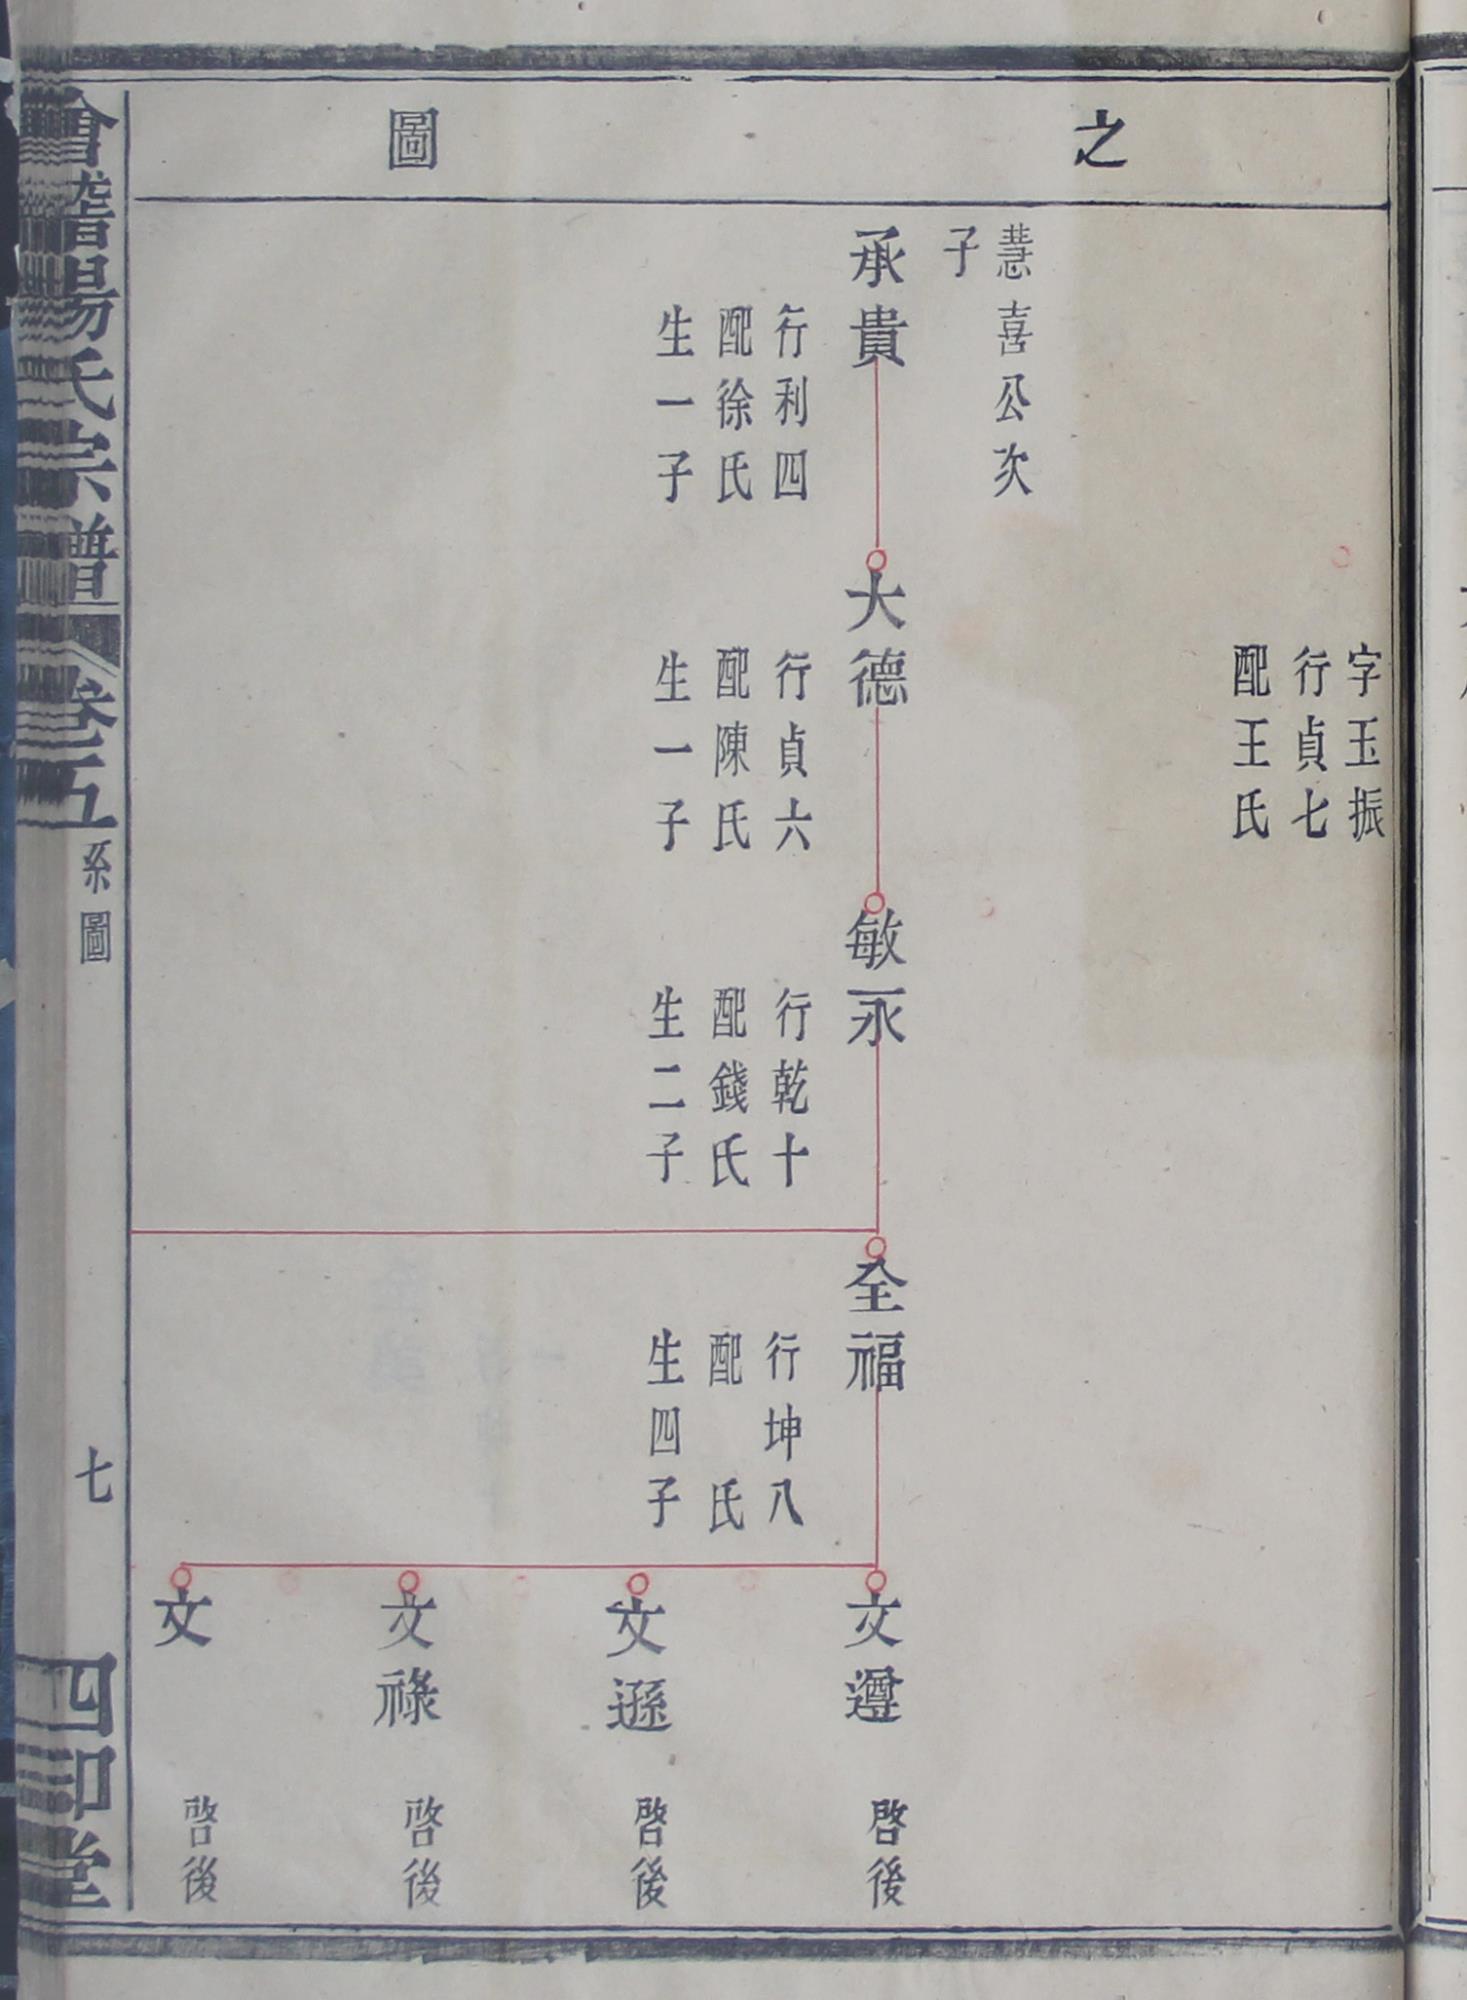 之
圖
字玉振
行貞七
配王氏
慧喜公次
子
承貴
行利四
配徐氏
生一子
大德
行貞六
配陳氏
生一子
敏永
行乾十
配錢氏
生二子
全福
行坤八
配 氏
生四子
文遵
啓後
文遜
啓後
文祿
啓後
文
啓後
會稽楊氏宗譜
卷五
系圖
七
四印堂